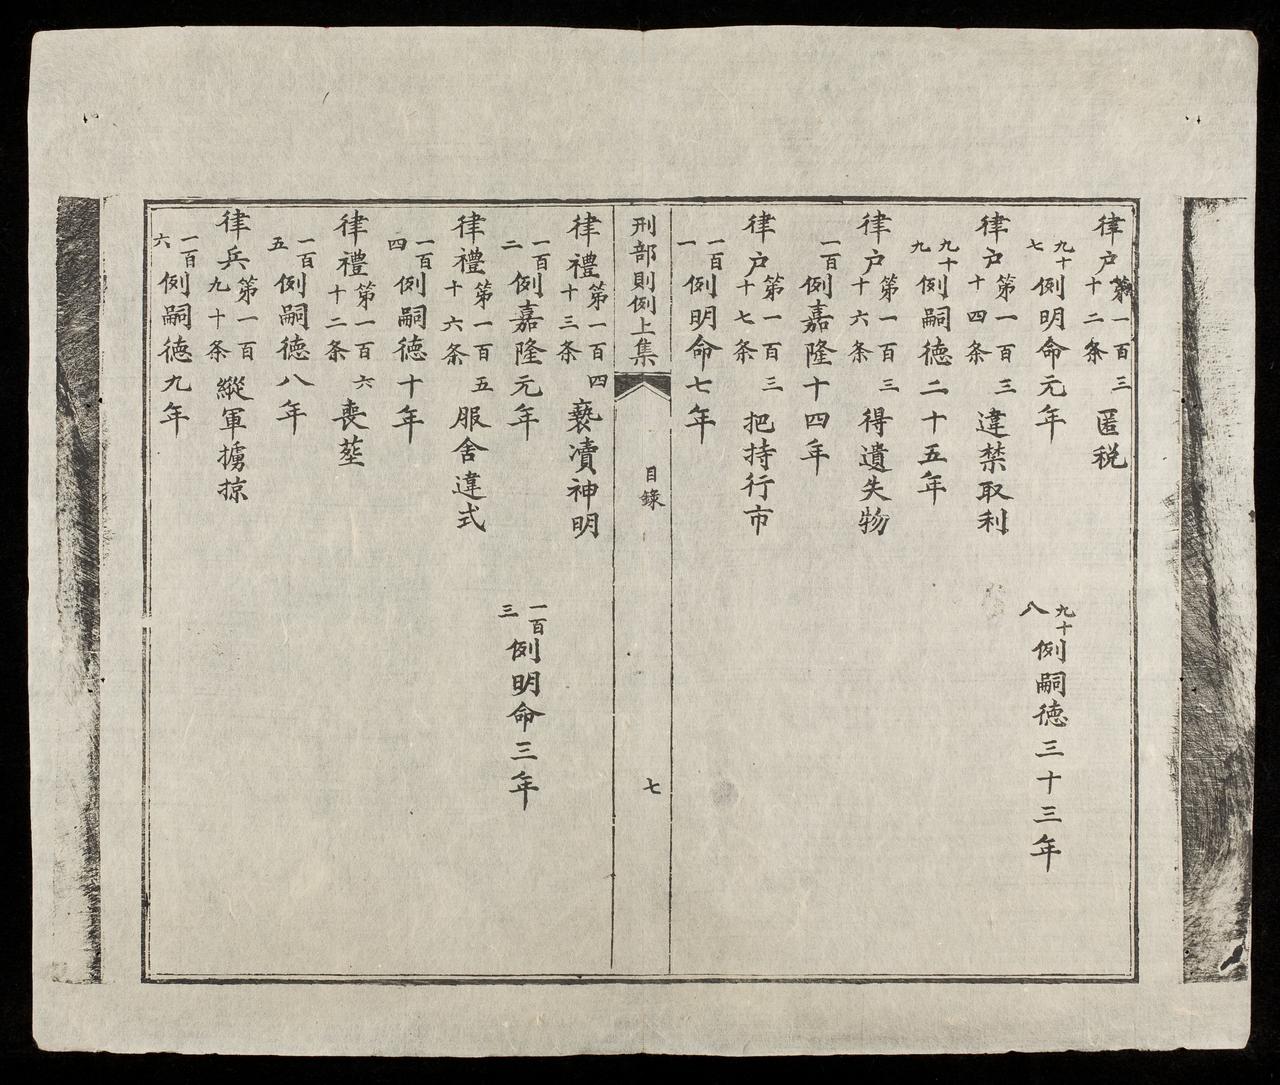 律户第一百三十二条匿税
九十七例明命元年 九十八例嗣徳三十三年
律户第一百三十四条違禁取利
九十九例嗣徳二十五年
律户第一百三十六条得遺失物
一百例嘉隆十四年
律户第一百三十七条把持行市
一百一例明命七年
刑部則例上集 目錄 七
律禮第一百四十三条褻瀆神明
一百二例嘉隆元年 一百三例明命三年
律禮第一百五十六条服舍違式
一百四例嗣徳十年
律禮第一百六十二条喪塟
一百五例嗣徳八年
律兵第一百九十条縱軍擄掠
一百六例嗣徳九年